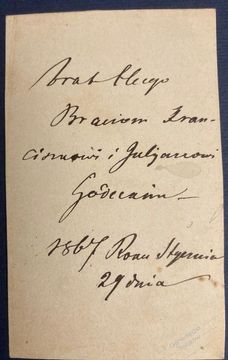 brat Illego
Braciom Fran-
ciszkowi i Juljanowi
Godeckim
1867 Roku Stycznia
29 dnia